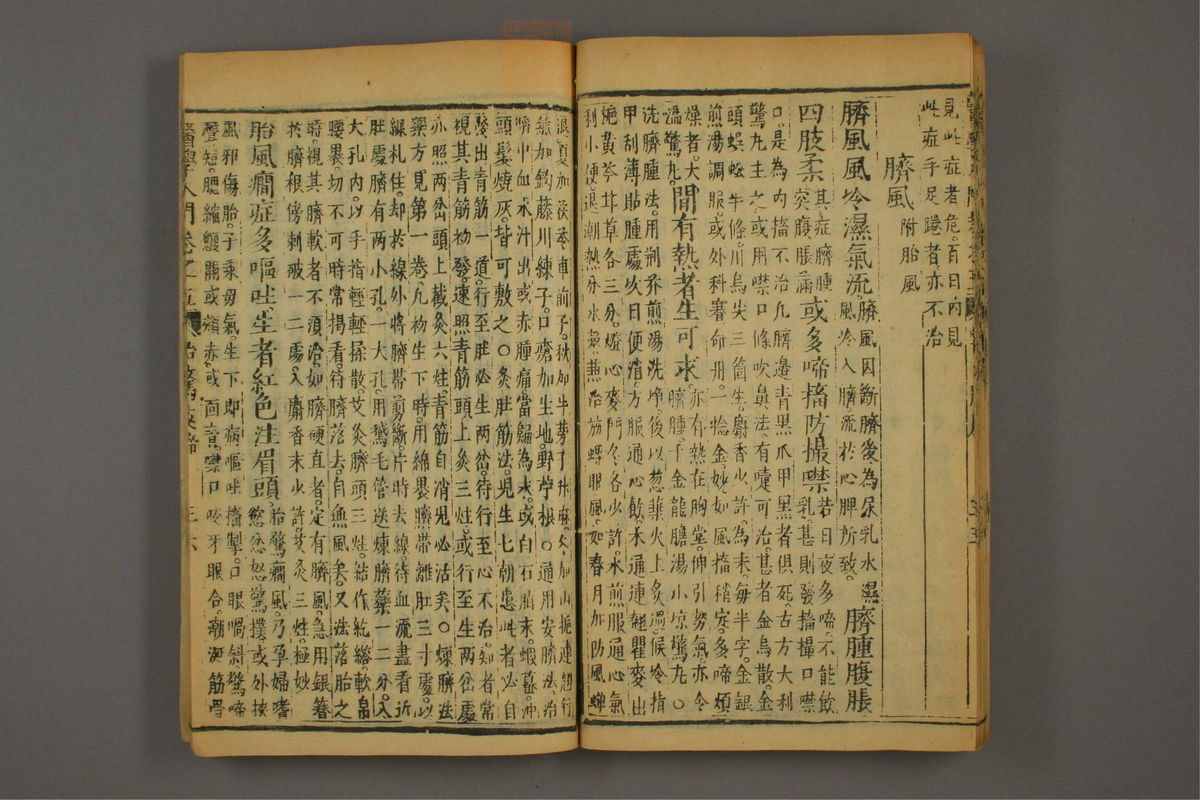 見此症者危百日內見
此症手足踡者亦不治
臍風附胎風
臍風風冷濕氣流臍風因斷臍後為尿乳水濕風冷入臍流於心脾所致臍腫腹脹
四肢柔其症臍腫突腹脹滿或多啼搐防撮噤若日夜多啼不能飲乳甚則發搐撮口噤
口是為內搐不治凡臍邊青黑爪甲黑者俱死古方大利
驚丸主之或用噤口條吹鼻法有嚏可治甚者金烏散金
頭蜈蚣半條川烏尖三箇生麝香少許為末每半字金銀
煎湯調服或外科賽命丹一捻金妙如風搐稍定多啼煩
燥者大溫驚丸間有熱者生可求亦有熱在胸堂伸引努氣亦令臍腫千金龍膽湯小凉驚丸○
洗臍腫法用荆芥煎湯洗淨後以葱葉火上炙過候冷指
甲刮薄貼腫處次日便消方服通心飲木通連翹瞿麥
梔黃芩甘草各三分燈心麥門冬各少許水煎服通心氣
利小便退潮熱分水穀兼治旋螺眼風如春月加防風蟬
退夏加茯苓車前子秋加牛蒡子升麻冬加山梔連翹
加鈎藤川練子口瘡加生地野苧根○通用安臍法治
臍中血水汁出或赤腫痛當歸為末或白石脂末蝦蟇
頭髮燒灰皆可敷之○灸肚筋法兒生七朝患此者必自
發出青筋一道行至肚必生兩岔待行至心不治知者常
視其青筋初發速照青筋頭上灸三炷或行至生兩岔處
亦照兩岔頭上截灸六炷青筋自消兒必活矣○煉臍法
藥方見第一卷凡初生下時用綿裹臍帶離肚三寸處以
線札住却於線外將臍帶剪斷片時去線待血流盡看近
肚處臍有兩小孔一大孔用鵝毛管送煉臍藥一二分入
大孔內以手指輕輕揉散艾灸臍頭三炷結作紇綹軟帛
腰裹切不可時常揭看待臍落去自無風矣又法落胎之
時視其臍軟者不須治如臍硬直者定有臍風急用銀簪
於臍根傍刺破一二處入麝香末少許艾灸三炷極妙
胎風癎症多嘔吐生者紅色注眉頭胎驚癎風乃孕婦嗜慾忿怒驚撲或外挾
風邪傷胎子乘母氣生下即病嘔吐搐掣口眼喎斜驚啼
聲短腮縮顋開或頰赤或面青噤口咬牙眼合潮涎筋骨
醫學入門卷之五 三六